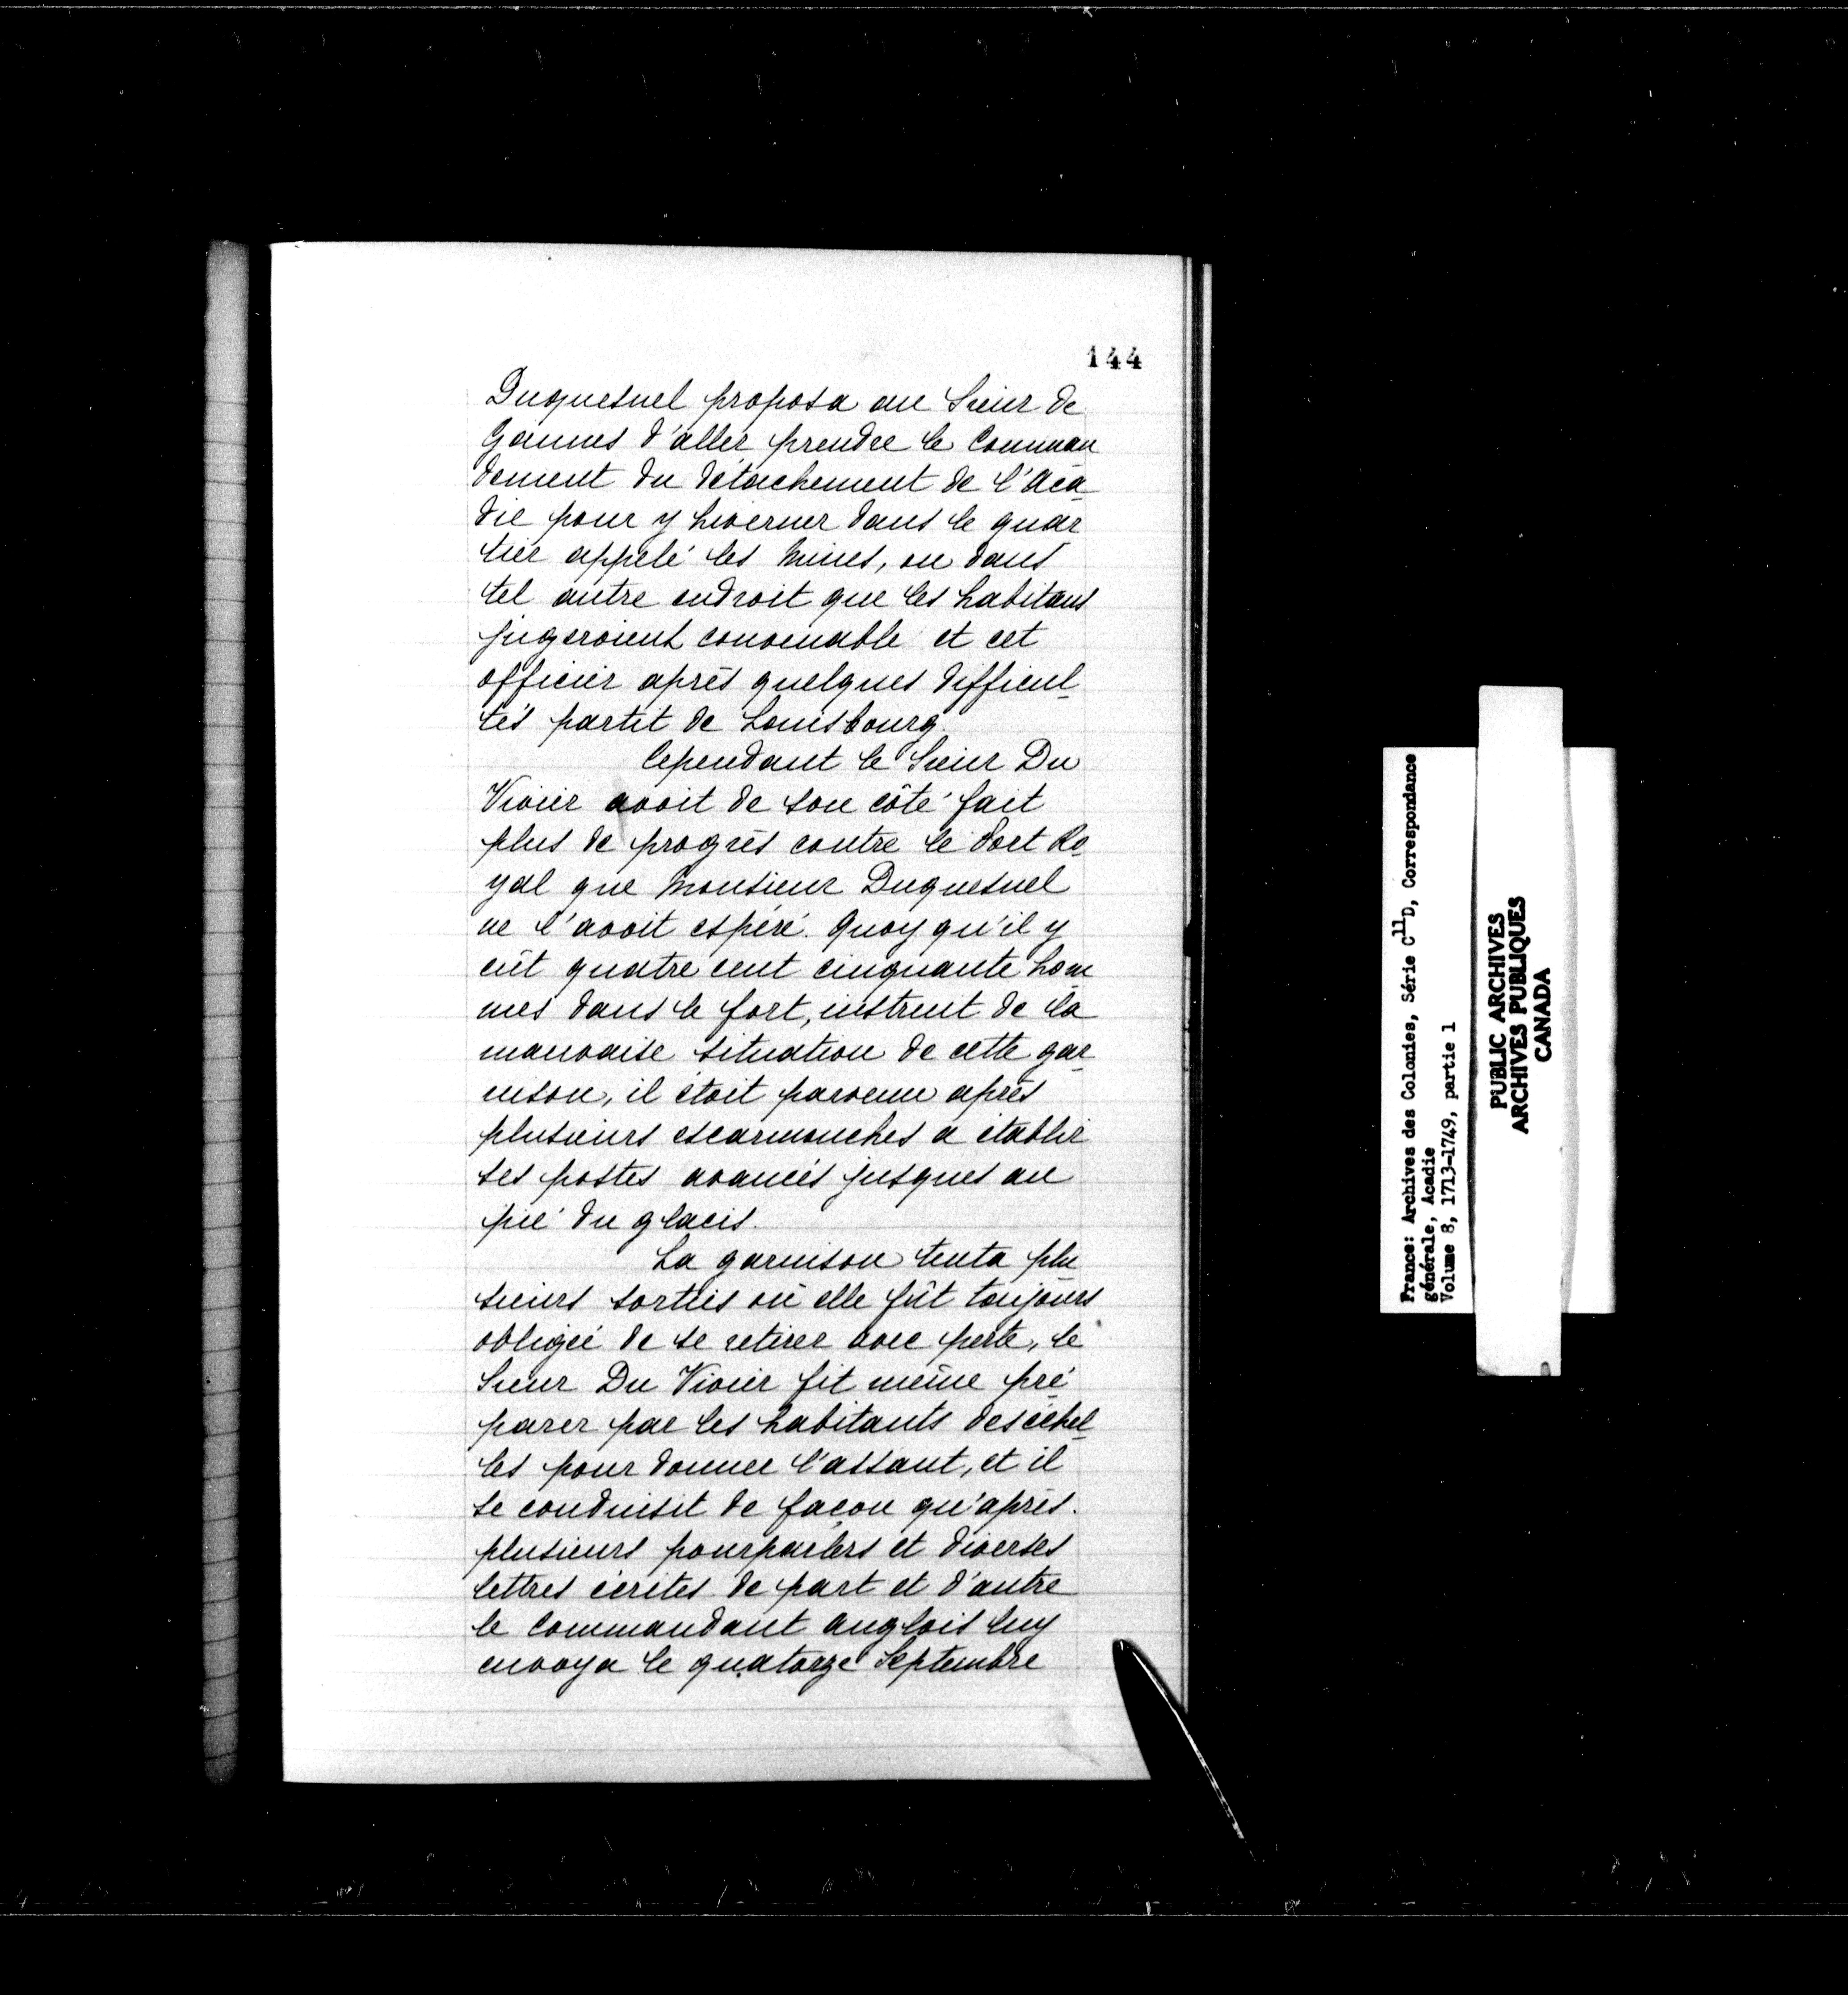 144
Duquesnel proposa au Sieur de
Gannes d'aller prendre le Comman
dement du détachement de l'Aca
die pour y hiverner dans le quar
tier appelé les Mines, ou dans
tel autre endroit que les habitans
jugeroient convenable et cet
officier après quelques difficul
tés partit de Louisbourg.
Cependant le Sieur Du
Vivier avoit de son côté fait
plus de progrès contre le Port Ro
yal que Monsieur Duquesnel
ne l'avoit espéré. Quoy qu'il y
eût quatre cent cinquante hom
mes dans le fort, instruit de la
mauvaise situation de cette gar
nison, il étoit parvenu après
plusieurs escarmouches a établir
ses postes avancés jusques au
pié du glacis.
La garnison tenta plu
sieurs sorties où elle fût toujours
obligée de se retirer avec perte, le
Sieur Du Vivier fit même pré
parer par les habitants des échel
les pour donner l'assaut, et il
se conduisit de façon qu'après
plusieurs pourparlers et diverses
lettres écrites de part et d'autre
le Commandant anglois luy
envoya le quatorze Septembre
France: Archives des Colonies, Série C11D, Correspondance
générale, Acadie
Volume 8, 1713-1749, partie 1
PUBLIC ARCHIVES
ARCHIVES PUBLIQUES
CANADA